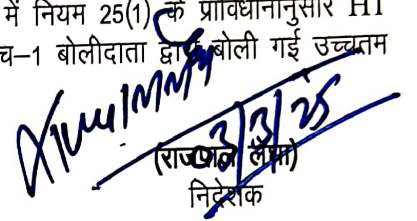 में नियम 25(1) के प्राविधानानुसार H1
च-1 बोलीदाता द्वारा बोली गई उच्चतम
03/3/25
निदेशक